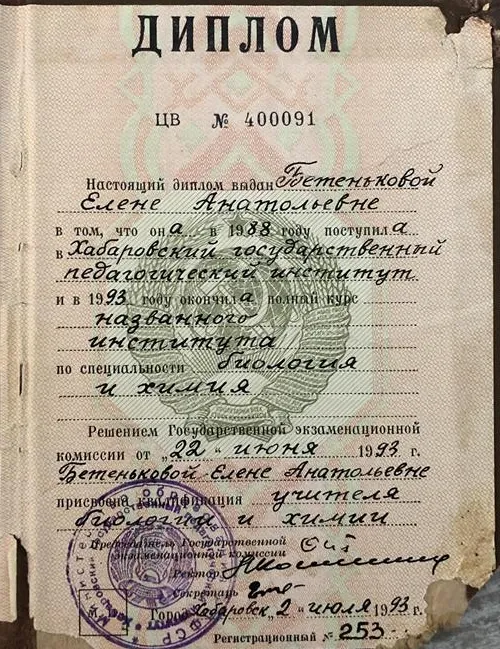 ДИПЛОМ
ЦВ № 400091
Настоящий диплом выдан Бетеньковой
Елене Анатольевне
в том, что она в 1988 году поступила
в Хабаровский государственный
педагогический институт
и в 1993 году окончила полный курс
названного
института
по специальности биология
и химия
Решением Государственной экзаменационной
комиссии от „22“ июня 1993 г.
Бетеньковой Елене Анатольевне
присвоена квалификация учителя
биологии и химии
Председатель Государственной
экзаменационной комиссии
Ректор
Секретарь
Город Хабаровск „2“ июля 1993 г.
Регистрационный № 253